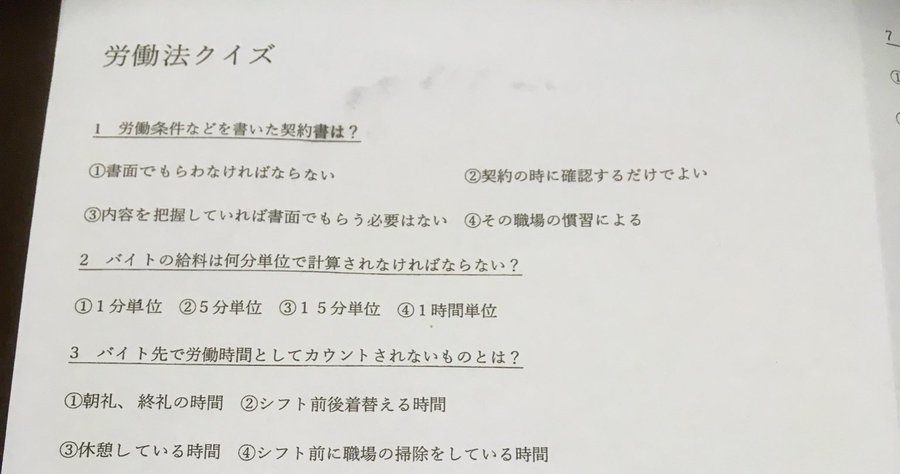 労働法クイズ
1　労働条件などを書いた契約書は？
①書面でもらわなければならない　②契約の時に確認するだけでよい
③内容を把握していれば書面でもらう必要はない　④その職場の慣習による
2　バイトの給料は何分単位で計算されなければならない？
①１分単位　②５分単位　③１５分単位　④１時間単位
3　バイト先で労働時間としてカウントされないものとは？
①朝礼、終礼の時間　②シフト前後着替える時間
③休憩している時間　④シフト前に職場の掃除をしている時間
7
①